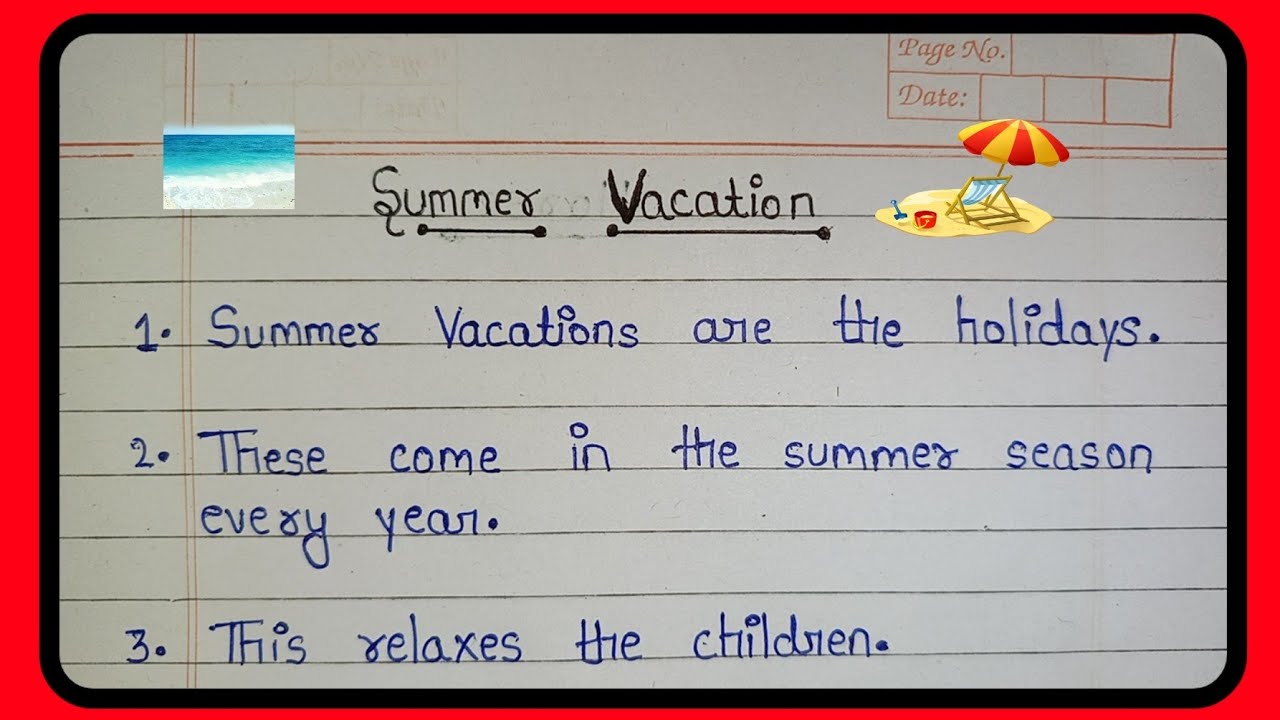 Page No.
Date:
Summer Vacation
1. Summer Vacations are the holidays.
2. These come in the summer season
every year.
3. This relaxes the children.